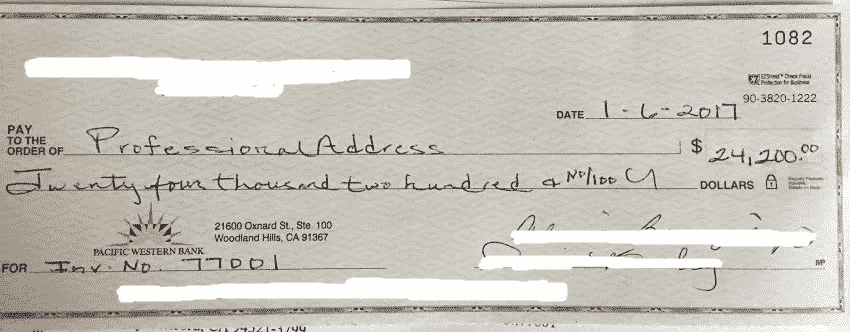 1082
EZShield™ Check Fraud
Protection for Business
90-3820-1222
DATE 1-6-2017
PAY
TO THE
ORDER OF Professional Address $ 24,200.00
Twenty four thousand two hundred & No/100 DOLLARS
Security Features
Included.
Details on Back.
21600 Oxnard St., Ste. 100
Woodland Hills, CA 91367
PACIFIC WESTERN BANK
FOR Inv. No. 77001
MP